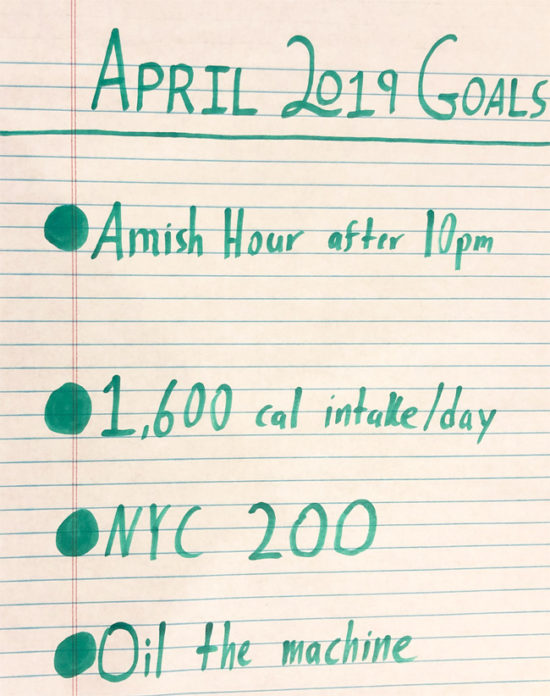 APRIL 2019 GOALS
Amish Hour after 10pm
1,600 cal intake/day
NYC 200
Oil the machine